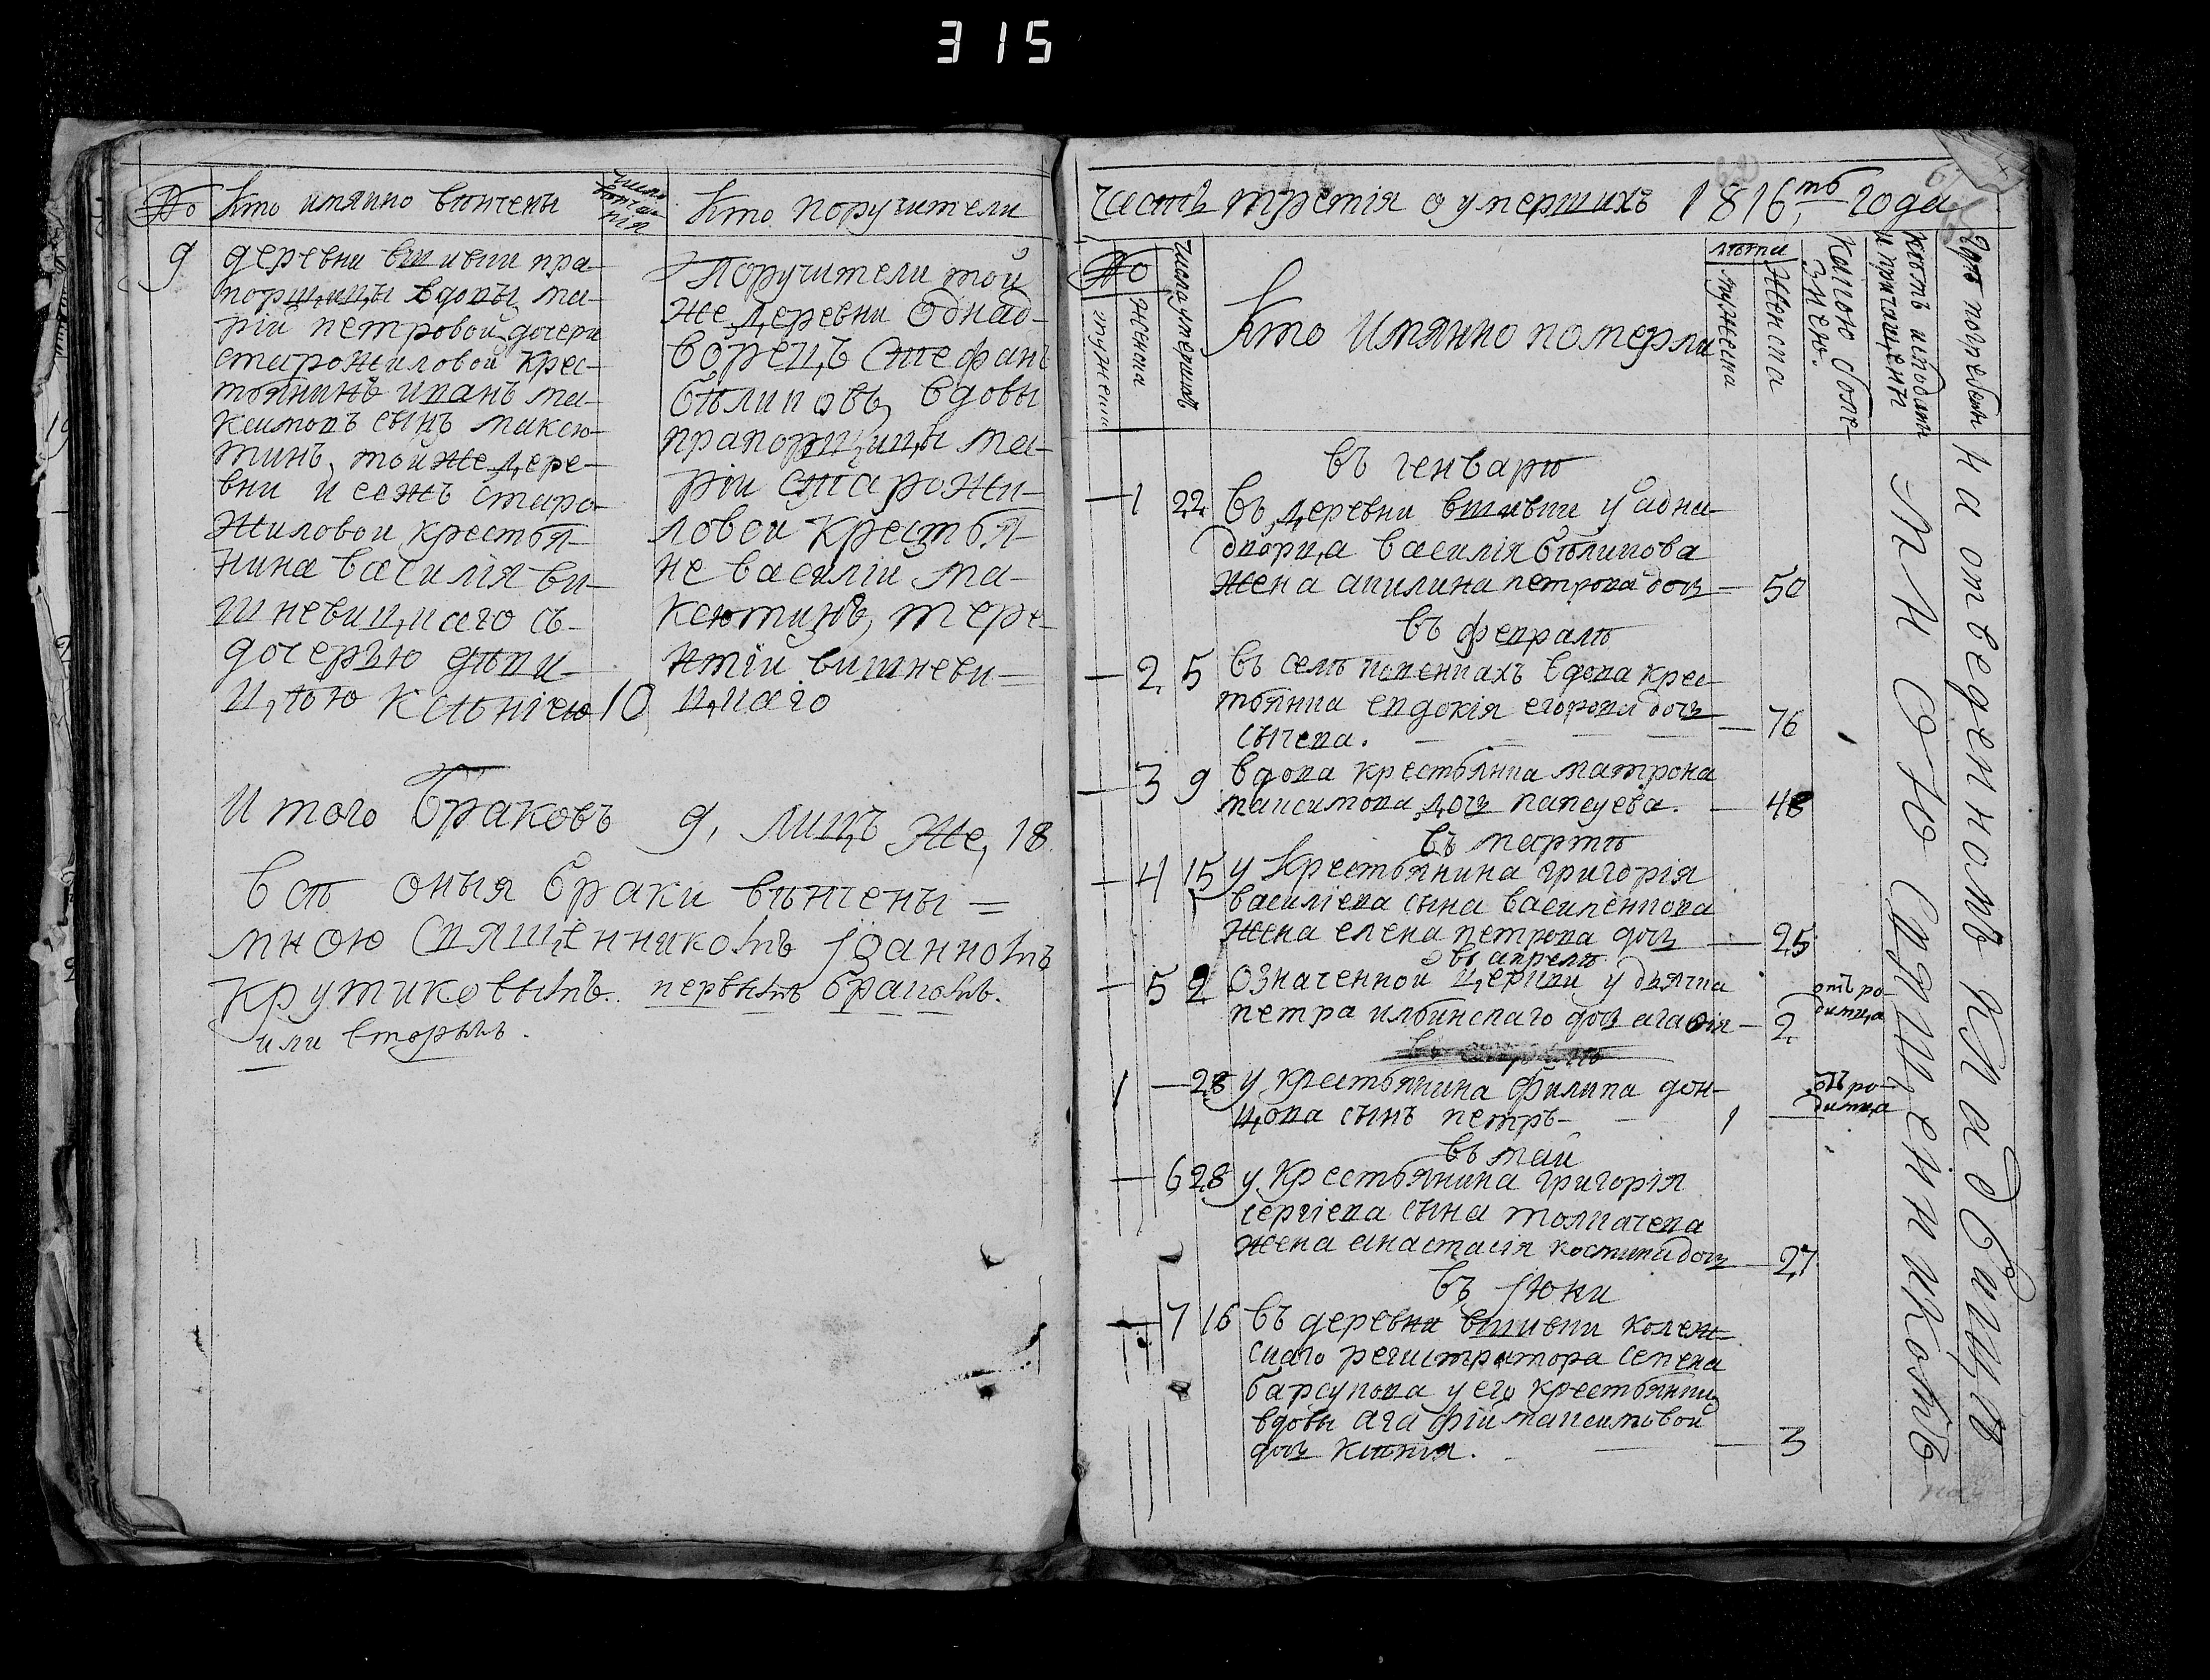 315
№ Кто имянно венчены
число венчания
Кто поручители
9 деревни вшивки пра-
порщицы вдовы ма-
рiи петровой дочери
старожиловой крес-
тьянинъ иванъ ма-
ксимовъ сынъ максю-
тинъ, той же дере-
вни и
старо-
жиловой крестья-
нина василiя ви-
шневицкаго съ
дочерью деви-
цею ксѣнiею 10
Поручители той
же деревни однад-
ворецъ стефанъ
бѣликовъ, вдовы
прапорщицы ма-
рiи старожи-
ловой крестья-
не василiй ма-
ксютинъ, тере-
нтiй вишневи-
цкаго
Итого браковъ 9, лицъ же, 18.
всѣ оныя браки вѣнчены =
мною священникомъ Iоанномъ
крутиковымъ.. первымъ бракомъ.
или вторымъ.
часть третiя о умершихъ 1816го года
№
мужески
женска
числа умершихъ
Кто имянно померли
лѣта
мужеска
женска
какою болѣ-
знею.
кемъ исповеданы
и прiчащены
гдѣ погребены
въ генварѣ
— 1 22 въ деревни вшивки у адна-
дворца василiя бѣликова
жена акилина петрова дочь — 50
въ февралѣ
— 2 5 въ селѣ
вдова крес-
тьянка евдокiя егорова дочь
сычева. — 76
— 3 9 вдова крестьянка матрона
максимова дочь
— 48
въ мартѣ
— 4 15 у крестьянина григорiя
василiева сына василенкова
жена елена петрова дочь — 25
въ апрелѣ
— 5 2 означенной церкви у дьячка
петра ильинскаго дочь агафiя — 2
отъ ро-
димца
1 — 28 у крестьянина филипа дон-
цова сынъ петръ — 1 —
отъ ро-
димца
въ маи
— 6 28 у крестьянина григорiя
сергiева сына толкачева
жена анастасiя костина дочь — 27
въ Iюни
— 7 16 въ деревни вшивки колеж-
скаго регистратора семена
барсукова у его крестьянки
вдовы агафiи максимовой
дочь ксѣнiя. — 3
мною священникомъ
на отведенномъ кладбищѣ